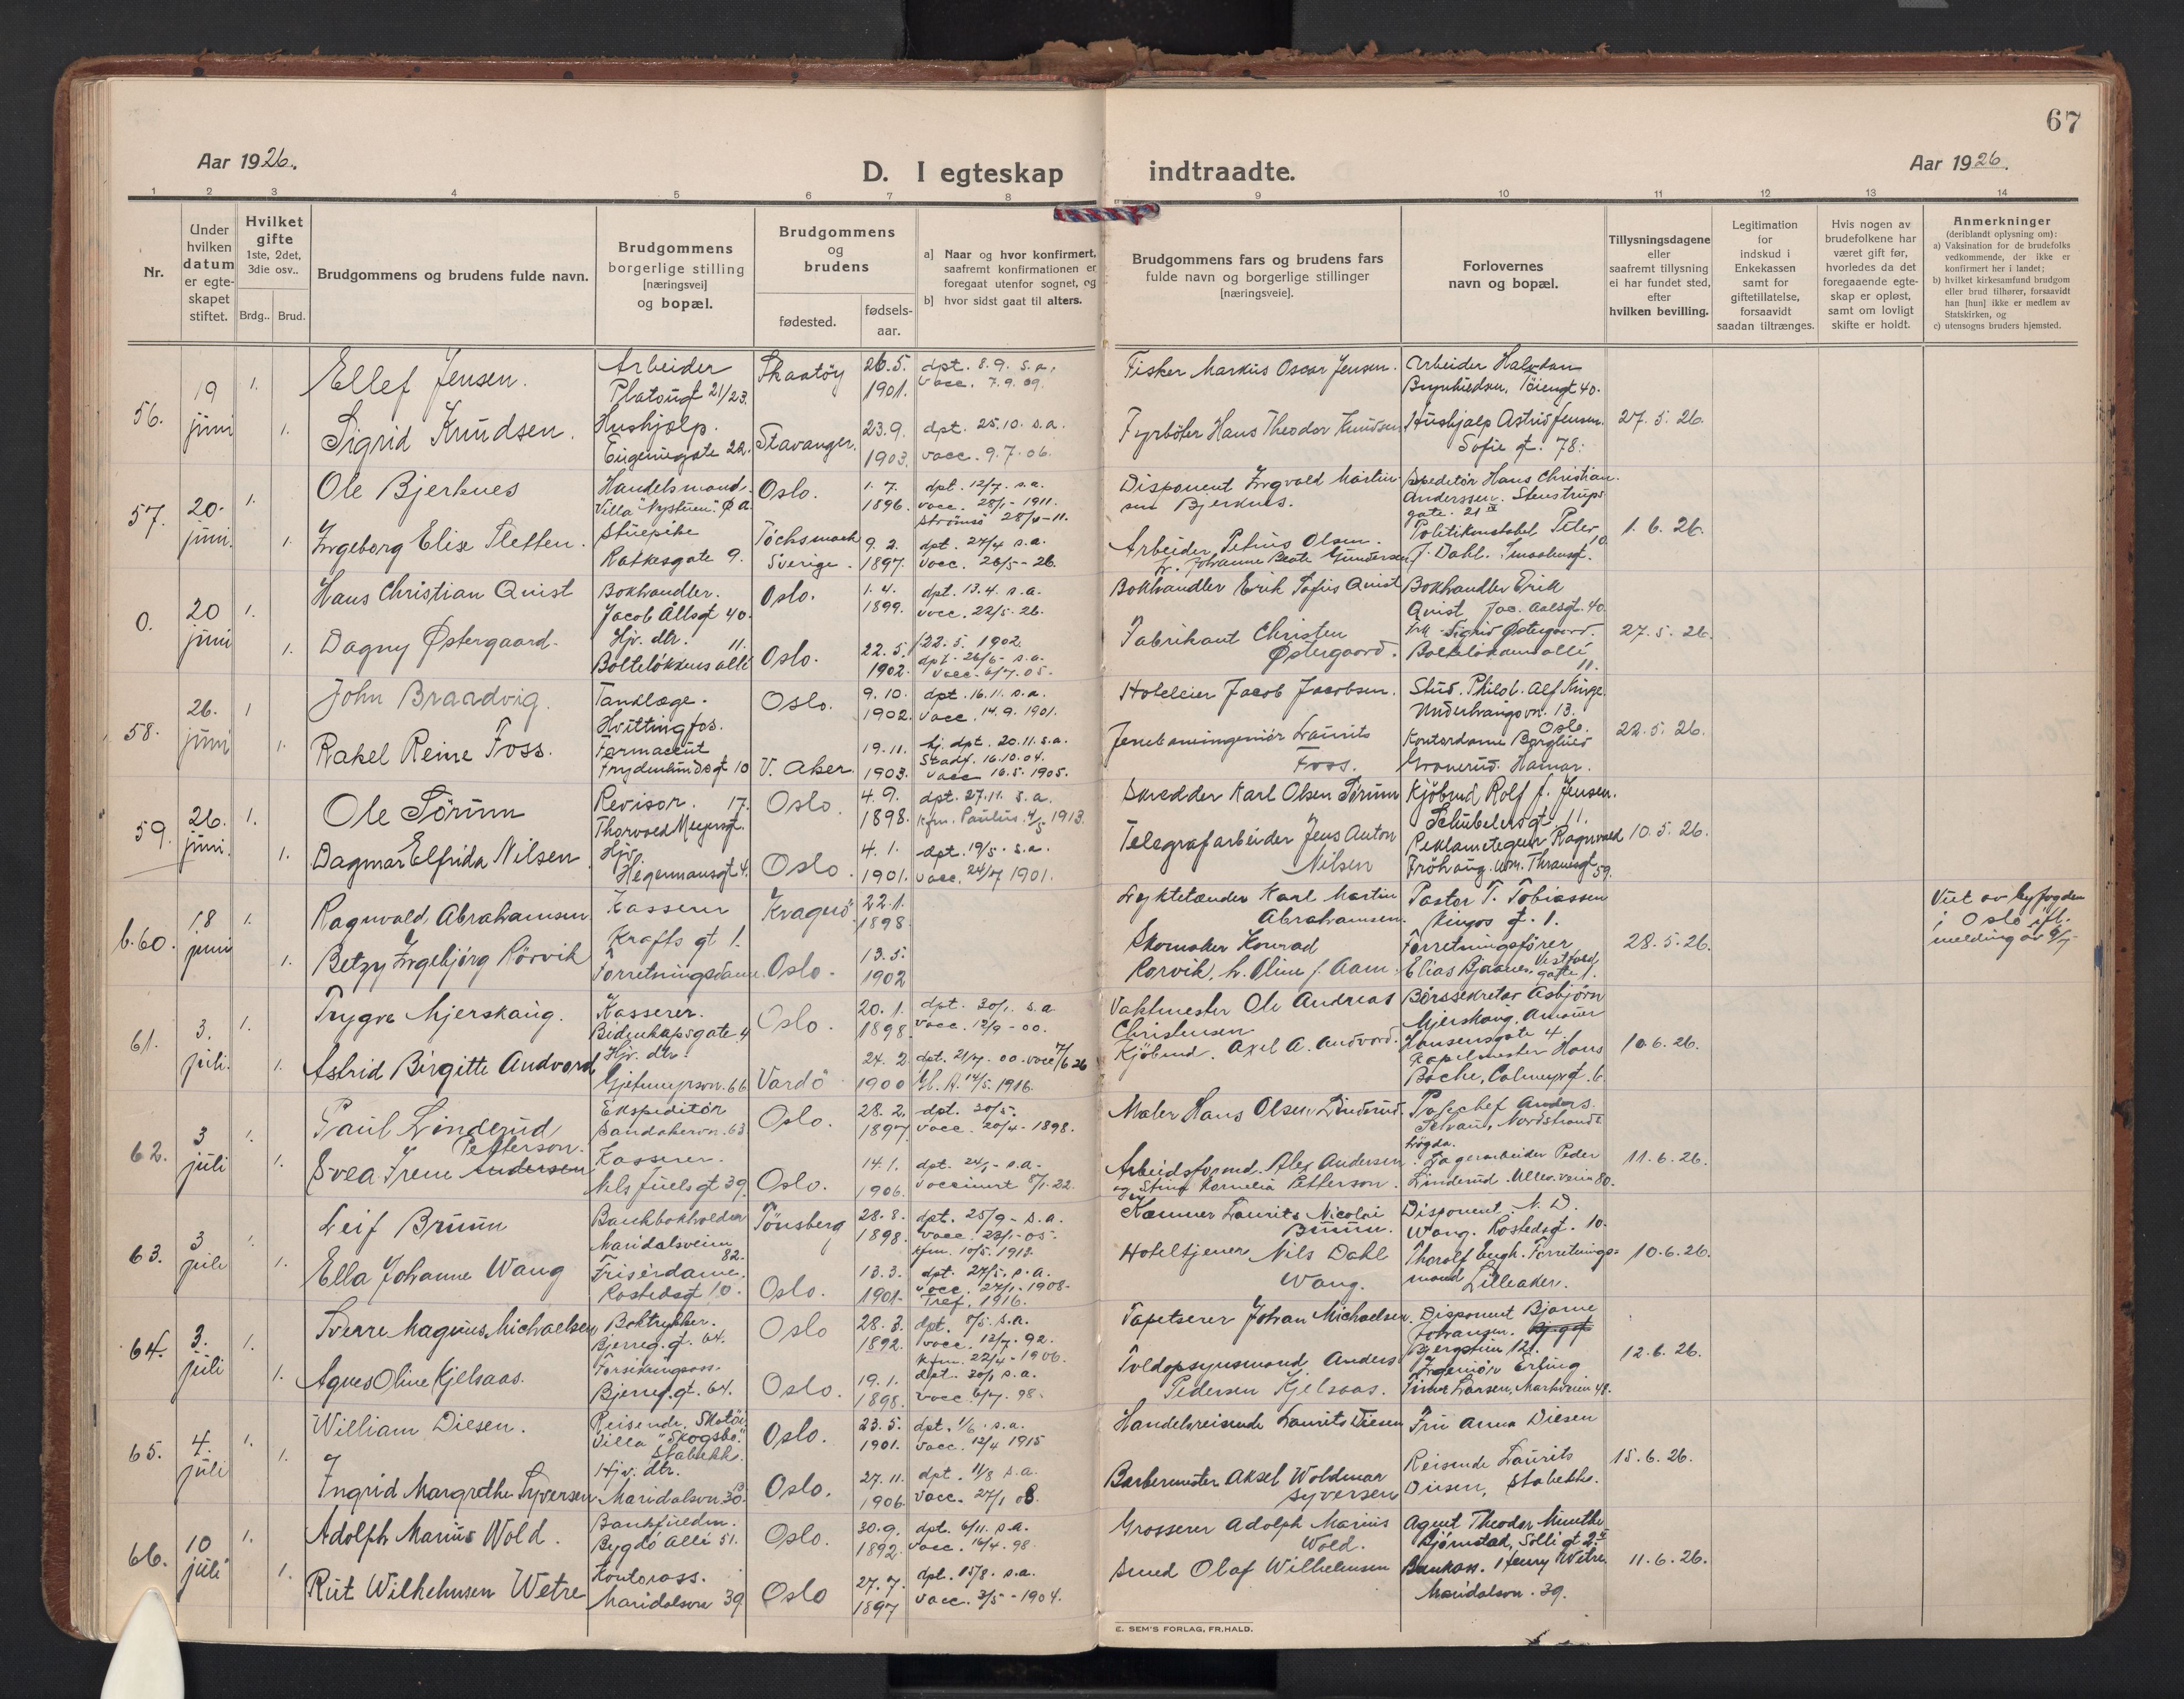 67
Aar 1926.
D. I egteskap indtraadte.
Aar 1926.
1 2 3 4 5 6 7 8 9 10 11 12 13 14
Nr.
Under hvilken datum er egteskapet stiftet.
Hvilket gifte 1ste, 2det, 3die osv..
Brdg.. Brud.
Brudgommens og brudens fulde navn.
Brudgommens borgerlige stilling [næringsvei] og bopæl.
Brudgommens og brudens
fødested.
fødsels-aar.
a] Naar og hvor konfirmert, saafremt konfirmationen er foregaat utenfor sognet, og
b] hvor sidst gaat til alters.
Brudgommens fars og brudens fars fulde navn og borgerlige stillinger [næringsveie].
Forlovernes navn og bopæl.
Tillysningsdagene eller saafremt tillysning ei har fundet sted, efter hvilken bevilling.
Legitimation for indskud i Enkekassen samt for giftetillatelse, forsaavidt saadan tiltrænges.
Hvis nogen av brudefolkene har været gift før, hvorledes da det foregaaende egteskap er opløst, samt om lovligt skifte er holdt.
Anmerkninger
(deriblandt oplysning om):
a) Vaksination for de brudefolks vedkommende, der ikke er konfirmert her i landet;
b) hvilket kirkesamfund brudgom eller brud tilhører, forsaavidt han [hun] ikke er medlem av Statskirken, og
c) utensogns bruders hjemsted.
56. 19 juni
1. Ellef Jensen. Arbeider Platousgt 21/23. Skaatöy 26.5. 1901. dpt. 8.9. s.a. vacc. 7.9.09. Fisker Markus Oscar Jensen. Arbeider Halvdan
1. Sigrid Knudsen. Hushjælp. Eugeniesgate 22. Stavanger. 23.9. 1903. dpt. 25.10. s.a. vacc. 9.7.06. Fyrböter Hans Theodor Knudsen Hushjælp Astrid Jensen. Sofie gt. 78. 27.5.26.
57. 20. juni.
1. Ole Bjerknes Handelsmand. Villa "Nystuen". Ø A. Oslo. 1.7. 1896. dpt. 12/7. s.a. vacc. 28/1-1911. Disponent Ingvald Martin Bjerknes. Speditör Hans Christian Anderssen. Stenstrups gate. 21 IV
1. Ingeborg Elise Sletten. Stuepike Ratkesgate 9. Töcksmark Sverige. 9.2. 1897. dpt. 24/4 s.a. vacc. 26/5-26. Arbeider Petrus Olsen. Johanne Beate Gundersen Politikonstabel Peter J. Dahl. 1.6.26.
0. 20 juni
1. Hans Christian Quist Bokhandler. Jacob Ållsgt 40. Oslo. 1.4. 1899. dpt. 13.4. s.a. vacc. 22/5.26. Bokhandler Erik Sofus Quist Bokhandler Erik Quist Jac. Aalsgt. 40
1. Dagny Østergaard. Hjv. dtr. 11. Bolteløkkens allé Oslo. 22.5. 1902. dpt. 26/6- s.a. vacc. 6/7.05. Fabrikant Christen Østergaard. Frk. Sigrid Østergaard. Bolteløkkens allé 11. 27.5.26.
58. 26. juni
1 John Braadvig. Tandlæge. Hvittingfos. Oslo. 9.10. 1902. dpt. 16.11. s.a. vacc. 14.9.1901. Hoteleier Jacob Jacobsen. Stud. Philol. Alf Kinge. 13. Oslo.
1. Rakel Reine Foss. Farmaceut Frydenlundsgt 10 V. Aker. 19.11. 1903. hj. dpt. 20.11. s.a. Stadf. 16.10.04. vacc 16.5.1905. Jernbaneingeniör Laurits Foss. Kontordame Borghild Hamar. 22.5.26.
59. 26. juni.
1. Ole Sörum Revisor. 17. Thorvald Meyersgt. Oslo. 4.9. 1898. dpt. 27.11. s.a. kfm. Paulus 4/5 1913. Skrædder Karl Olsen Sörum Kjöbmd Rolf J. Jensen. Schübelersgt 11.
1. Dagmar Elfrida Nilsen Hjv. Hegermansgt 4. Oslo. 4.1. 1901. dpt. 19/5. s.a. vacc. 24/7 1901. Telegrafarbeider Jens Anton Nilsen Reklametegner Ragnvald Fröhaug. Wm. Thranesgt 59. 10.5.26.
b.60. 18 juni
1. Ragnvald Abrahamsen Kasserer Krafts gt 1. Kragerö 22.1. 1898 Lyktetænder Karl Martin Abrahamsen. Pastor T. Tobiassen Kingos gt. 1.
1. Betzy Ingebjörg Rörvik Forretningsdame. Oslo. 13.5. 1902 Skomaker Konrad Rorvik. h. Oline f. Aam. Forretningsförer Elias Bjaanes. Vestfold gate 1. 28.5.26.
Viet av byfogden i Oslo ifl. melding av 9/7
61. 3. juli.
1. Trygve Mjerskaug. Kasserer. Bidenkapsgate 4 Oslo. 20.1. 1898. dpt. 30/1. s.a vacc. 12/9-00. Vaktmester Ole Andreas Christensen Börssekretær Asbjörn Mjerskaug.
1. Astrid Birgitte Andvord Hjv. dtr. 66 Vardö. 24.2 1900 dpt. 21/7.00. vacc 7/6 26 14/5.1916. Kjöbmd. Axel A. Andvord. Kapelmester Hans Bache, Calmeyersgt. 6. 10.6.26.
62. 3 juli
1. Paul Linderud Ekspeditör Sandakervn. 63 Oslo. 28.2. 1897 dpt. 30/5. vacc. 20/4-1898. Maler Hans Olsen Linderud. Anders. Nordstrands högda.
1. Svea Irene Andersen Petterson. Kasserer. Nils Juels gt 39. Oslo. 14.1. 1906. dpt. 24/2- s.a. vaccinert 8/1.22. Arbeidsformd. Alex Andersen og Stina Kornelia Petterson. Lagerarbeider Peder Linderud. Ullev.veien 80. 11.6.26.
63. 3 juli
1. Leif Bruun Bankbokholder Maridalsveien 82. Tönsberg 28.8. 1898. dpt. 25/9- s.a. vacc. 28/1-05. kfm. 10/5.1913. Kæmner Laurits Nicolai Bruun. Disponent N. D. Wang. Rostedsgt. 10.
1. Ella Johanne Wang Frisérdame. Rostedsgt 10. Oslo. 13.3. 1901. dpt. 27/5. s.a. vacc. 27/1-1908. Tref. 1916. Hoteltjener Nils Dahl Wang. Thorolf Engh. Forretningsmand Lilleaker. 10.6.26.
64. 3. juli
1. Sverre Magnus Michaelsen Boktrykker. Bjerreg.gt. 64. Oslo 28.3. 1892. dpt. 8/5. s.a. vacc. 12/7.92. kfm. 22/4-1906. Tapetserer Johan Michaelsen. Disponent Bjarne Johansen. Bjergstien 12.
1. Agnes Oline Kjelsaas. Forsikringsass. Bjerreg.gt. 64. Oslo. 19.1. 1898. dpt. 30/1 s.a. vacc 6/7.98. Toldopsynsmand Anders Pedersen Kjelsaas. Ingeniör Erling Larsen, Markveien 48. 12.6.26.
65. 4. juli
1. William Diesen. Reisende. Villa "Skogsbo" Stabekk. Oslo. 23.5. 1901. dpt. 1/6. s.a. vacc. 12/4 1915 Handelsreisende Laurits Diesen Fru Anna Diesen
1. Ingrid Margrethe Syversen Hjv. dtr. Maridalsvn 30. Oslo. 27.11. 1906. dpt. 11/8 s.a. vacc. 27/1 08. Barbermester Aksel Woldmar Syversen Reisende Laurits Diesen, Stabekk. 15.6.26.
66. 10 juli
1. Adolph Marius Wold. Bankfuldm. Bygdö Allé 51. Oslo. 30.9. 1892. dpt. 6/11. s.a. vacc. 16/4.98. Grosserer Adolph Marius Wold. Agent Theodor Munthe Björnstad, Solli gt 2 II
1. Rut Wilhelmsen Wetre Kontorass. Maridalsvn 39. Oslo 27.7. 1897 dpt. 15/8. s.a. vacc. 3/5-1904. Smed Olaf Wilhelmsen Bankass. Henry Wetre Maridalsvn. 39. 11.6.26.
E. SEM'S FORLAG, FR.HALD.